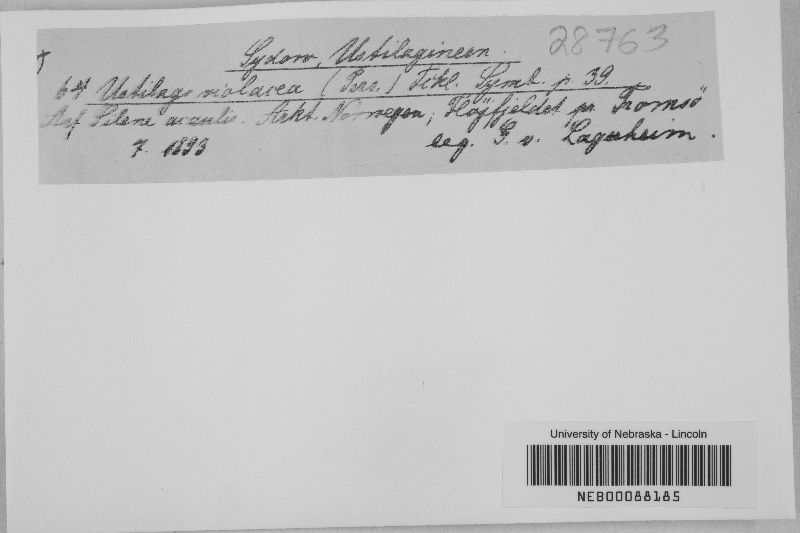 Sydow, Ustilagineen. 28763
64 Ustilago violacea (Pers.) Fckl. Symb. p. 39.
Auf Silene acaulis. Arkt. Norwegen; Höjfjeldet pr. Tromsö
7. 1893 leg. G. v. Lagerheim.
University of Nebraska - Lincoln
NEB00088185